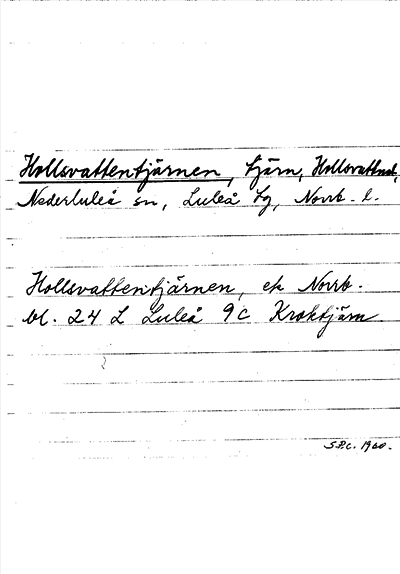 Hollsvattentjärnen, tjärn, Hollsvattnet,
Nederluleå sn, Luleå tg, Norrb. l.
Hollsvattentjärnen, ek Norrb.
bl. 24 L Luleå 9c Kroktjärn
1960.